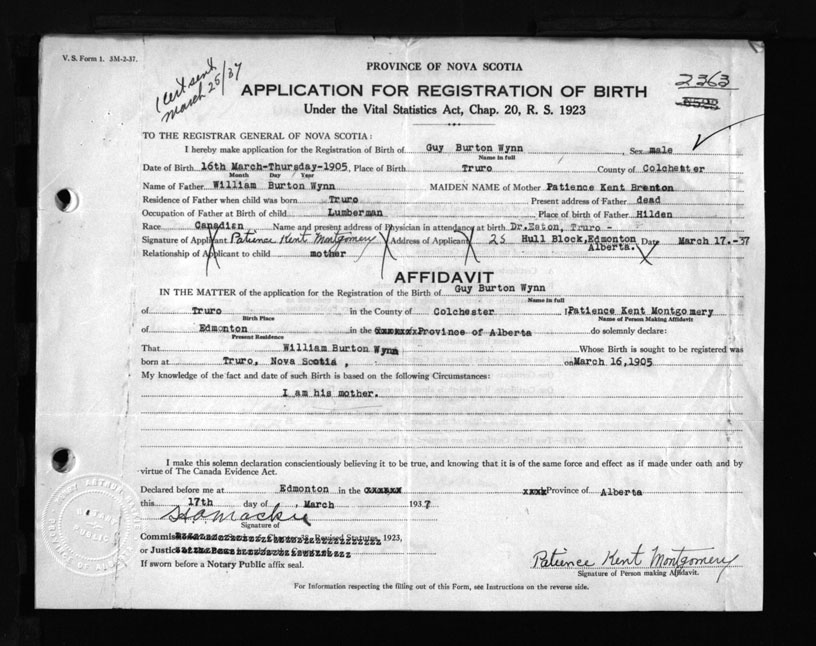 V. S. Form 1. 3M-2-37.
1 cert sent
March 25/37
PROVINCE OF NOVA SCOTIA
2363
APPLICATION FOR REGISTRATION OF BIRTH
Under the Vital Statistics Act, Chap. 20, R. S. 1923
TO THE REGISTRAR GENERAL OF NOVA SCOTIA:
I hereby make application for the Registration of Birth of Guy Burton Wynn, Sex male
Name in full
Date of Birth 16th March-Thursday-1905, Place of Birth Truro County of Colchester
Month Day Year
Name of Father William Burton Wynn MAIDEN NAME of Mother Patience Kent Brenton
Residence of Father when child was born Truro Present address of Father dead
Occupation of Father at Birth of child Lumberman Place of birth of Father Hilden
Race Canadian Name and present address of Physician in attendance at birth Dr.Eaton, Truro -
Signature of Applicant Patience Kent Montgomery Address of Applicant 25 Hull Block, Edmonton Date March 17.-37
Alberta.
Relationship of Applicant to child mother
AFFIDAVIT
IN THE MATTER of the application for the Registration of the Birth of Guy Burton Wynn
Name in full
of Truro in the County of Colchester I Patience Kent Montgomery
Birth Place Name of Person Making Affidavit
of Edmonton in the Province of Alberta do solemnly declare:
Present Residence
That William Burton Wynn Whose Birth is sought to be registered was
born at Truro, Nova Scotia, on March 16,1905
My knowledge of the fact and date of such Birth is based on the following Circumstances:
I am his mother.
I make this solemn declaration conscientiously believing it to be true, and knowing that it is of the same force and effect as if made under oath and by
virtue of The Canada Evidence Act.
Declared before me at Edmonton in the Province of Alberta
this 17th day of March 1937
Signature of
Commis Revised Statutes, 1923,
or Justice
If sworn before a Notary Public affix seal.
Patience Kent Montgomery
Signature of Person making Affidavit.
For Information respecting the filling out of this Form, see Instructions on the reverse side.